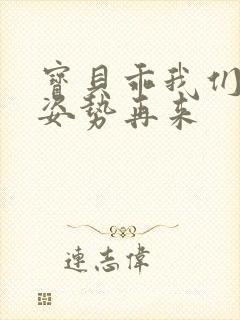 寶貝乖我们
姿勢再来
連志偉